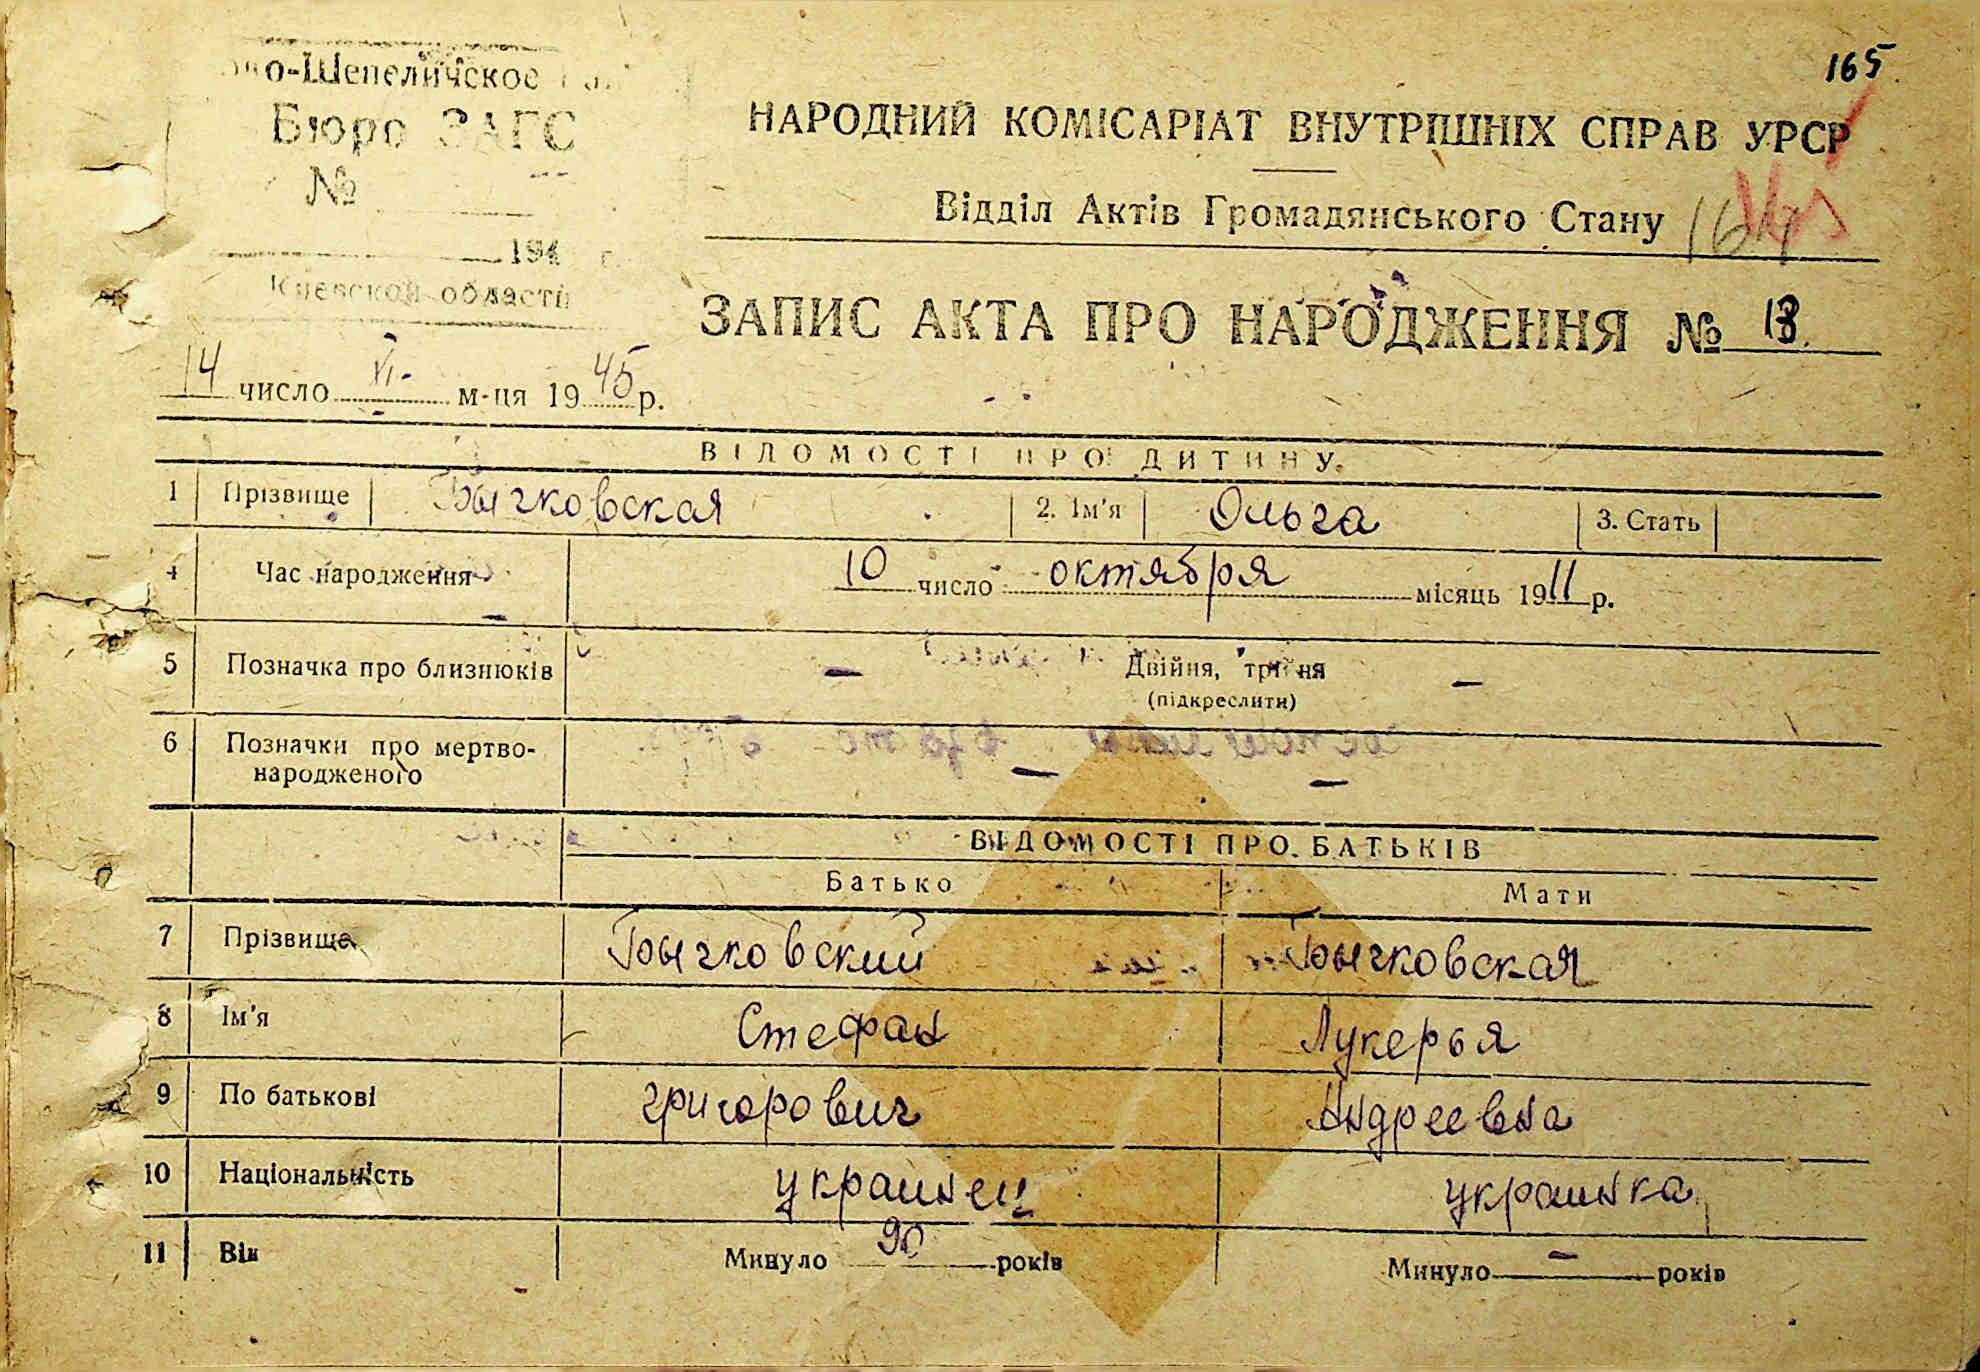 165
о-Шепеличское
Бюро ЗАГС
№
194 г.
Киевской области
НАРОДНИЙ КОМІСАРІАТ ВНУТРІШНІХ СПРАВ УРСР
Відділ Актів Громадянського Стану 164
ЗАПИС АКТА ПРО НАРОДЖЕННЯ № 13.
14 число VI- м-ця 1945 р.
ВІДОМОСТІ ПРО ДИТИНУ
1 Прізвище Бычковская 2. Ім'я Ольга 3. Стать
4 Час народження 10 число октября місяць 1911 р.
5 Позначка про близнюків — Двійня, трійня —
(підкреслити)
6 Позначки про мертво-
народженого — —
ВІДОМОСТІ ПРО БАТЬКІВ
Батько Мати
7 Прізвище Бычковский Бычковская
8 Ім'я Стефан Лукерья
9 По батькові григорович Андреевна
10 Національність украинец украинка
11 Вік Минуло 90 років Минуло — років